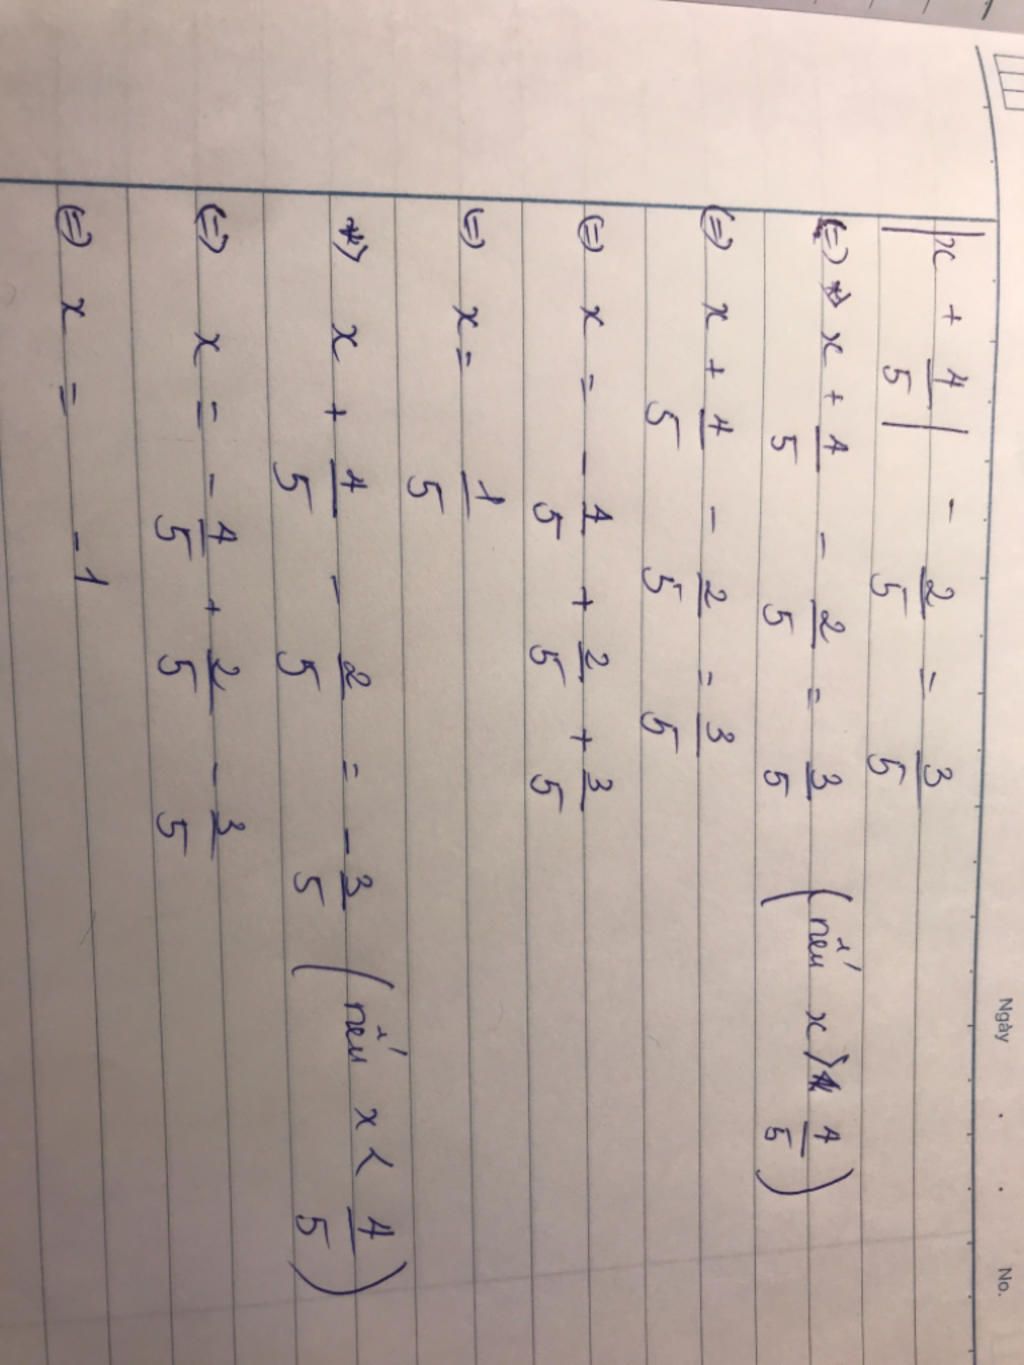 Ngày . . No.
|x + 4/5| - 2/5 = 3/5
(=) *) x + 4/5 - 2/5 = 3/5 (nếu x > 4/5)
(=) x + 4/5 - 2/5 = 3/5
(=) x = - 4/5 + 2/5 + 3/5
(=) x = 1/5
*) x + 4/5 - 2/5 = - 3/5 (nếu x < 4/5)
(=) x = - 4/5 + 2/5 - 3/5
(=) x = -1